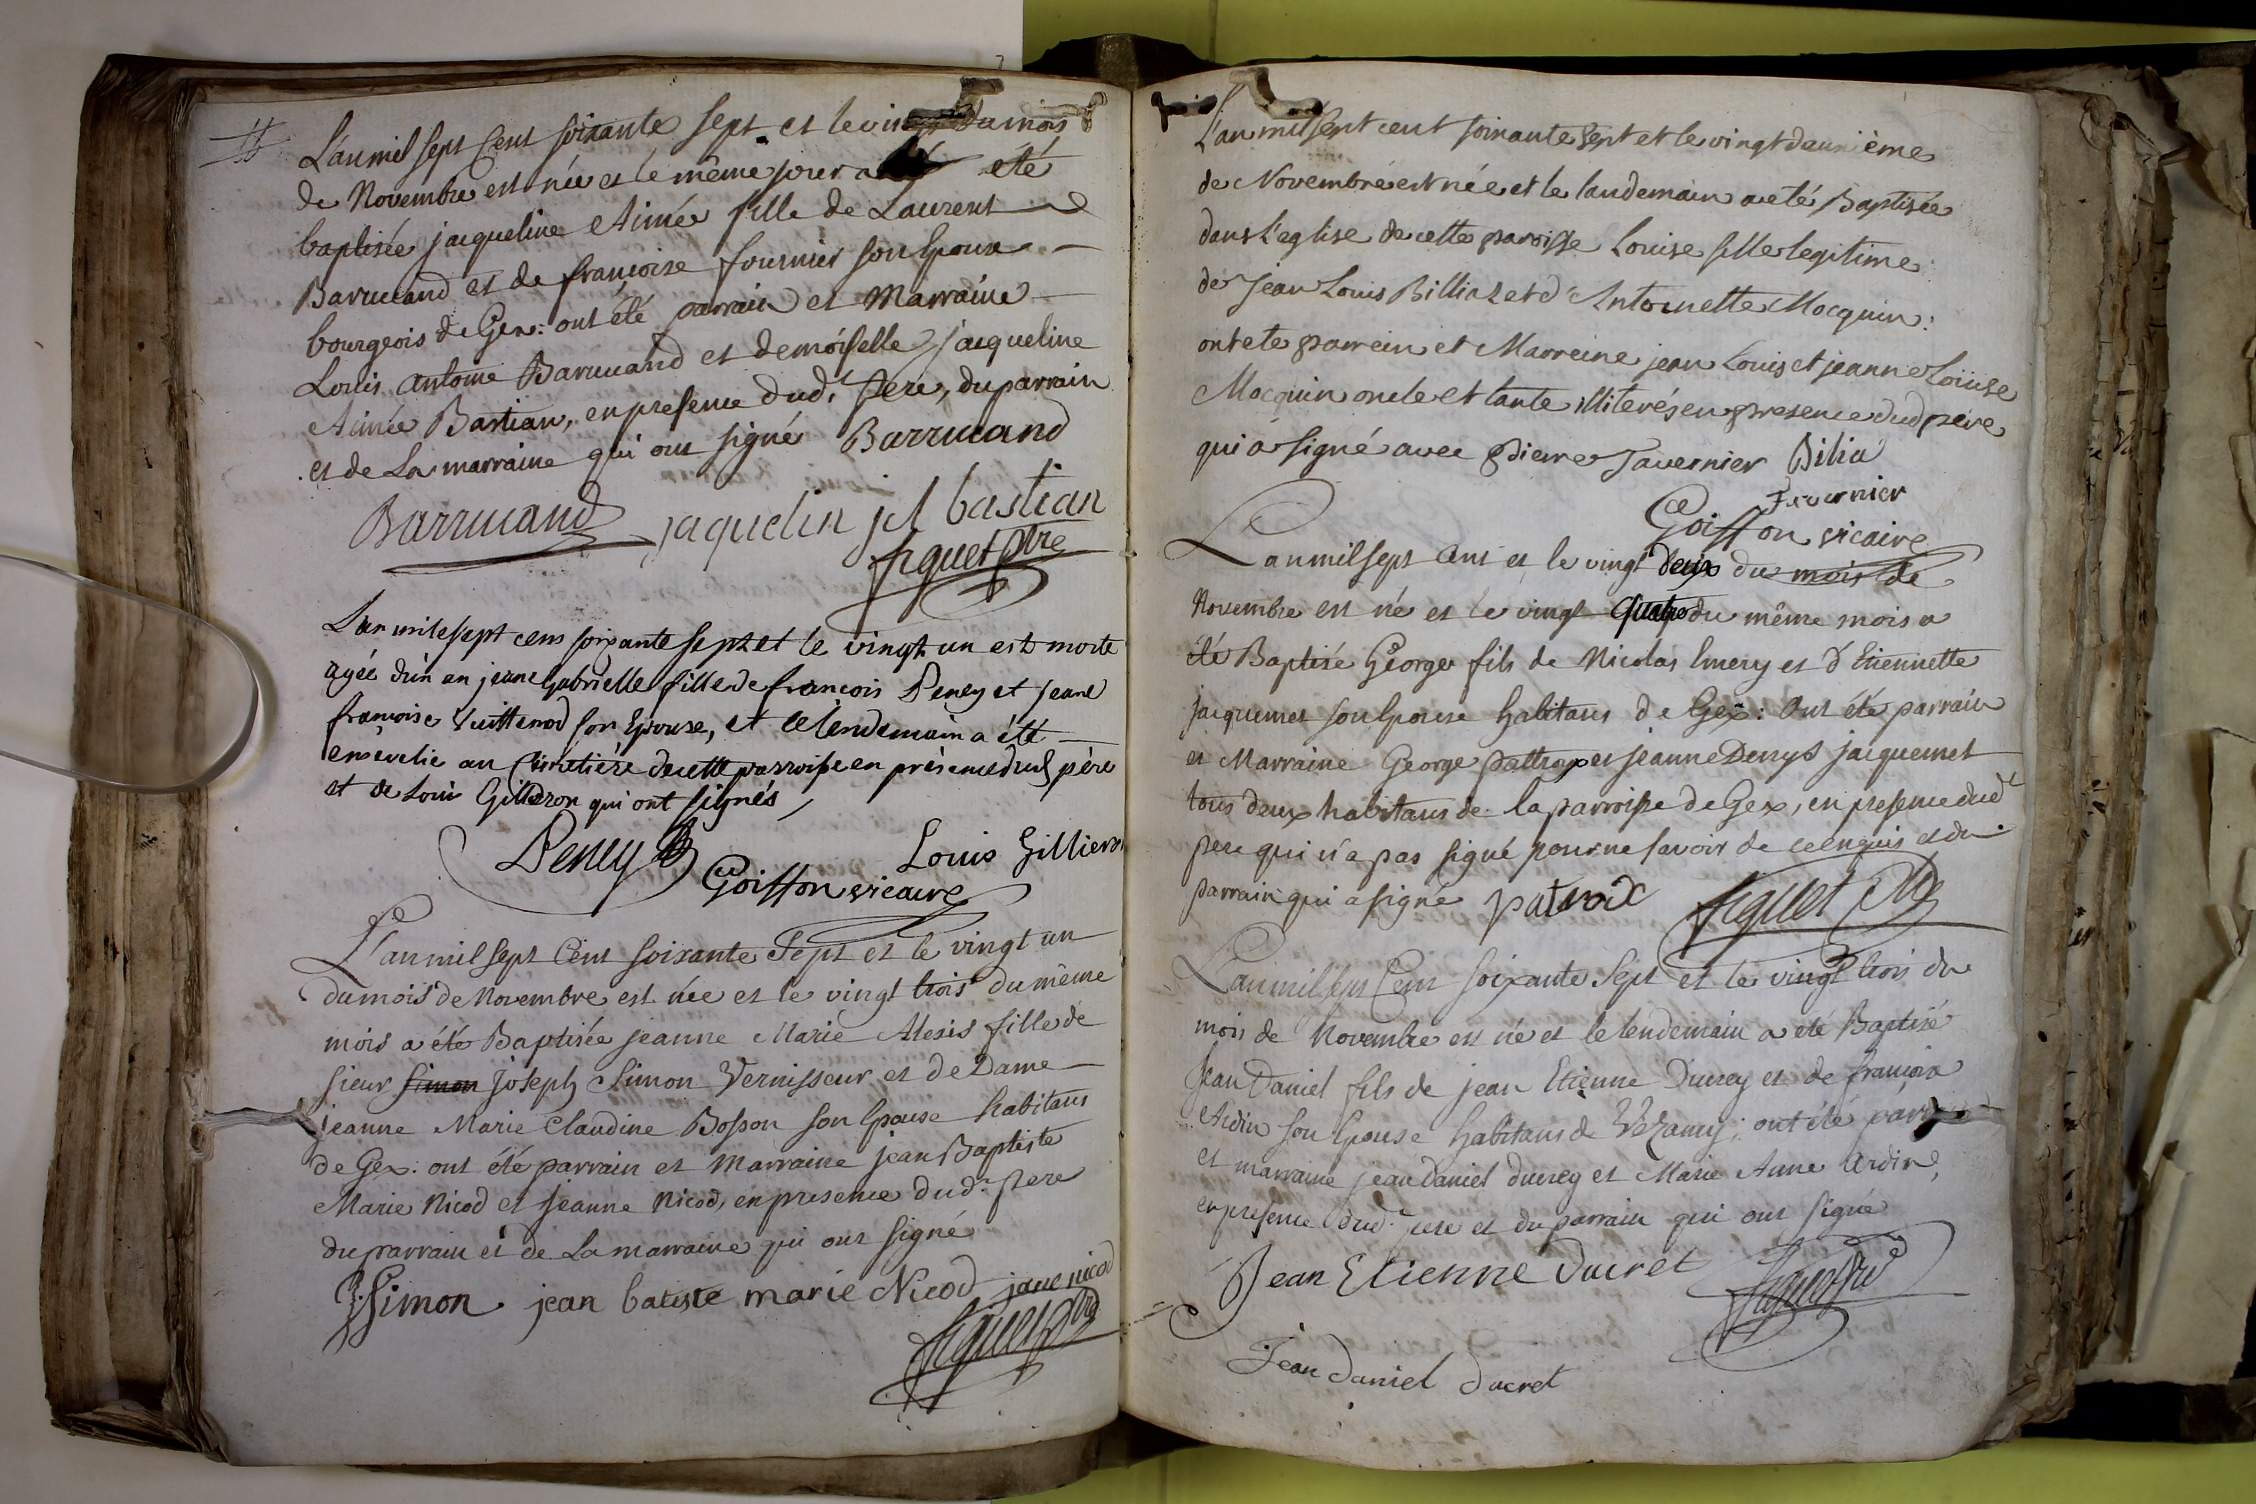 L'an mil sept Cent soixante sept et le vingt du mois
de Novembre est née et le même jour a été
baptisée jacqueline Aimée fille de Laurent
Barrucand et de françoise fournier son Epouse
bourgeois de Gex: ont été parrain et Marraine
Louis antoine Barrucand et demoiselle jacqueline
Aimée Bastian, en presence dud.t Pere, du parrain
et de La marraine qui ont signé Barrucand
Barrucand jaquelin bastian
figuet ptre
L'an mile sept cens soixante sept et le vingt un est morte
agée d'un an jeane Gabrielle fille de francois Peney et jeane
francoise Vuittenod son Epouse, et le lendemain a été
ensevelie au Cimétière de cette parroisse en présence dud père
et de Louis Gilliéron qui ont signés
Peney Louis Gilliero
Goiffon vicaire
L'an mil sept Cent soixante Sept et le vingt un
du mois de Novembre est née et le vingt trois du même
mois a été Baptisée jeanne Marie Alexis fille de
sieur simon joseph Simon Vernisseur et de Dame
jeanne Marie Claudine Bosson son Epouse habitans
de Gex: ont été parrain et Marraine jean Baptiste
Marie Nicod et jeanne Nicod, en presence dud.t Pere
du parrain et de La marraine qui ont signé
Simon jean batiste marie Nicod jane nicod
figuet ptre
L'an mil sept cent soixante sept et le vingt deuxième
de Novembre est née et le landemain a eté Baptisée
dans l'eglise de cette paroisse Louise fille legitime
de Jean Louis Billiaz et d'Antoinette Mocquin:
ont ete parrein et Marreine jean Louis et jeanne Louise
Mocquin oncle et tante illiterés en presence dud pere
qui a signé avec Pierre Tavernier Bilia
Tavernier
Goiffon vicaire
L'an mil sept Cent et le vingt deux du mois de
Novembre est né et le vingt quatre du même mois a
été Baptisé George fils de Nicolas Emery et d'Etiennette
jacquemet son Epouse habitans de Gex: Ont été parrain
et Marraine George pattroix et jeanne Denyse jacquemet
tous deux habitans de la parroisse de Gex, en presence dud.t
pere qui n'a pas signé pour ne savoir de ce enquis et du
parrain qui a signé patroix figuet ptre
L'an mil sept Cent soixante Sept et le vingt trois du
mois de Novembre est né et le lendemain a été Baptisé
Jean Daniel fils de jean Etienne Ducrey et de françoise
Ardin son Epouse habitans de Vezancy; ont été
et marraine jean Daniel ducrey et Marie Anne Ardin,
en presence dud.t Pere et du parrain qui ont signé
Jean Etienne Ducret figuet ptre
Jean Daniel ducret